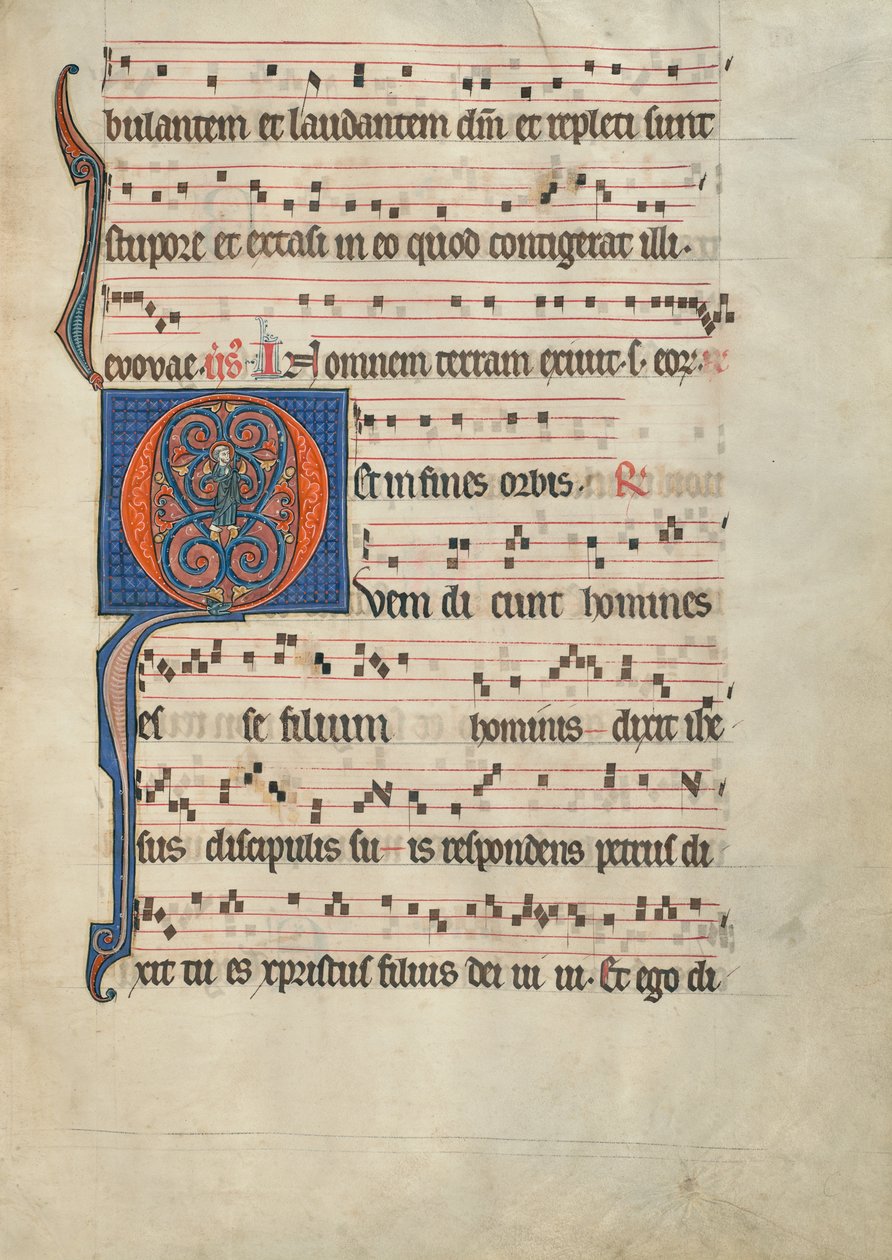 bulantem et laudantem dm̄ et repleti sunt
stupore et extasi in eo quod contigerat illi.
evovae. ijs̄. In omnem terram exiuit. s. eoꝝ. ℟
Et in fines orbis. ℟
Qvem di cunt homines
es se filium hominis dixit ihe
sus discipulis su is respondens petrus di
xit tu es xpristus filius dei ui ui. Et ego di